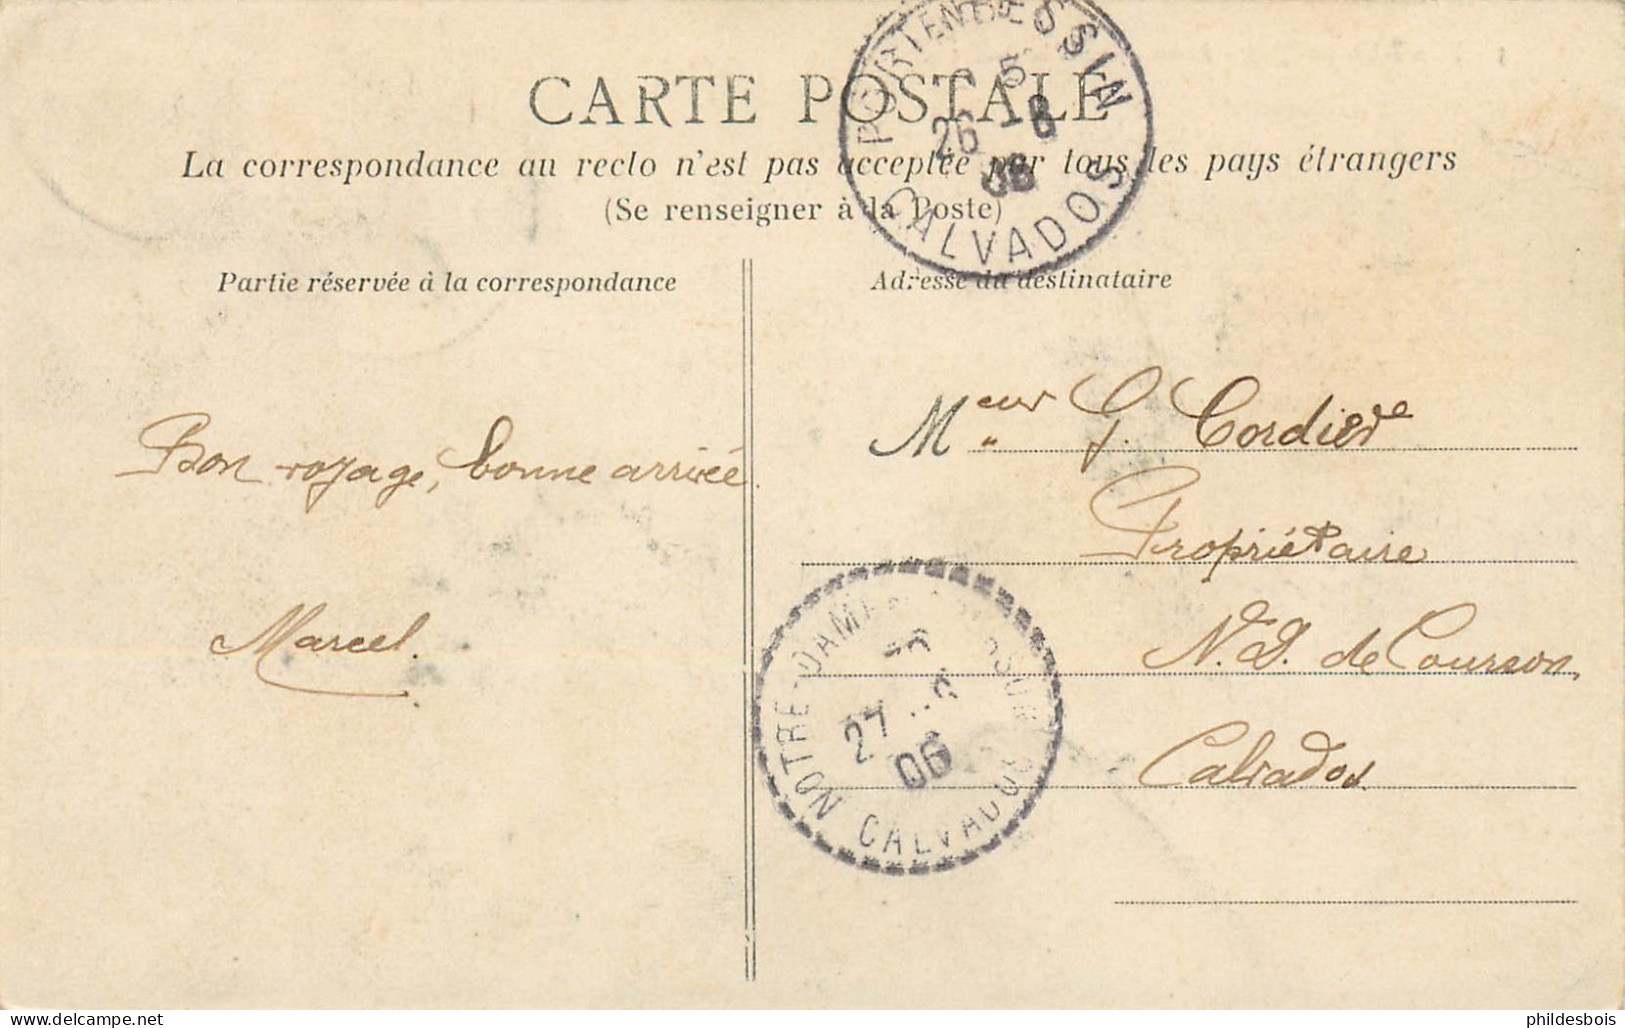 CARTE POSTALE
La correspondance au recto n'est pas acceptée par tous les pays étrangers
(Se renseigner à la Poste)
Partie réservée à la correspondance
Adresse du destinataire
PORT EN BESSIN
5
26 -8
06
CALVADOS
Bon voyage, bonne arrivée.
Marcel.
Meur G. Cordier
Propriétaire
N.D. de Courson,
Calvados
NOTRE-DAME
27 -8
06
CALVADOS
phildesbois